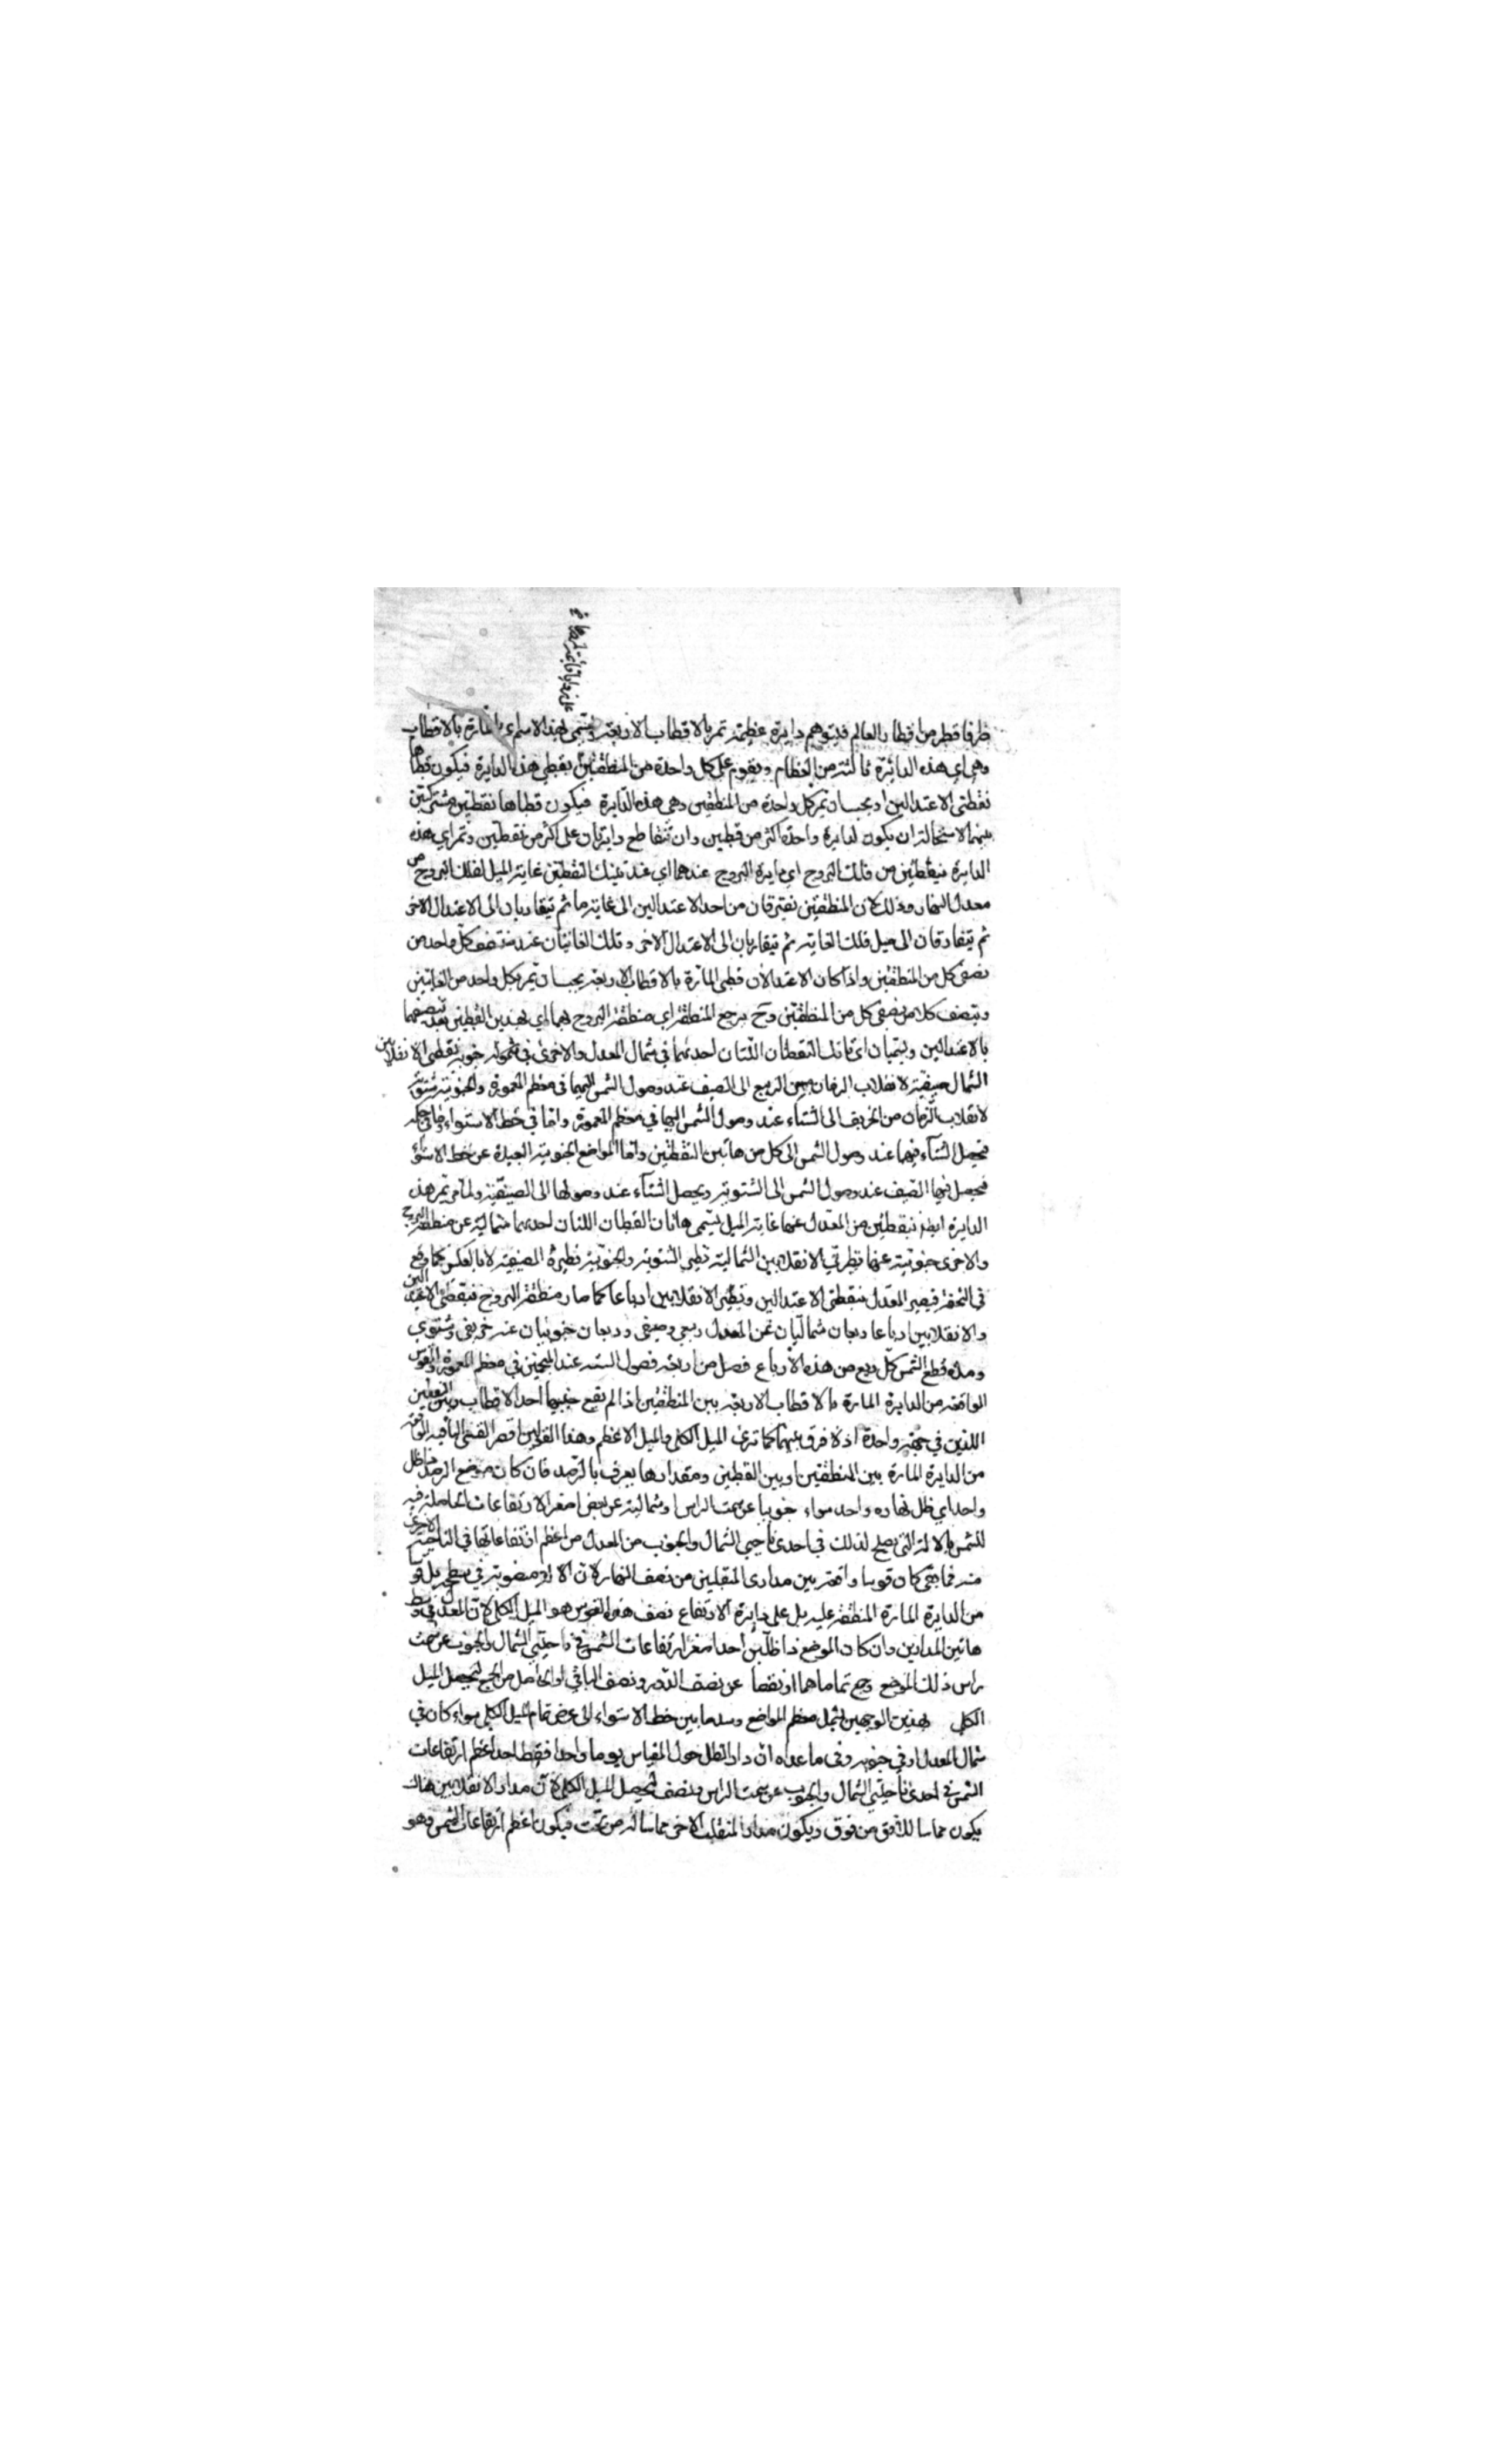 على زوايا قائمة
طرفا قطر من اقطار العالم فليتوهم دايرة عظيمة تمر بالاقطاب الاربعة وتسمى بهذا الاسم اى المارة بالاقطاب
وهي اي هذه الدائرة ثالثة من العظام وتقوم على كل واحدة من المنطقتين بقطبي هذه الدايرة فيكون قطباها
نقطتي الاعتدالين اذ يجب ان تمر كل واحدة من المنطقتين وهي هذه الدايرة فيكون قطباها نقطتين مشتركتين
بينهما لاستحالة ان يكون لدايرة واحدة اكثر من قطبين وان تتقاطع دايرتان على اكثر من نقطتين وتمر اي هذه
الدايرة بنقطتين من فلك البروج اي دايرة البروج عندهما اي عند تينك النقطتين غاية الميل لفلك البروج عن
معدل النهار وذلك لان المنطقتين تفترقان من احد الاعتدالين الى غاية ما ثم تتقاربان الى الاعتدال الاخر
ثم تتفارقان الى مثل تلك الغاية ثم تتقاربان الى الاعتدال الاخر وتلك الغايتان عند منتصف كل واحد من
نصفي كل من المنطقتين واذا كان الاعتدالان قطبي المارة بالاقطاب الاربعة يجب ان تمر بكل واحد من الغايتين
وتنصف كلا من نصفي كل من المنطقتين وح يربع المنطقة اي منطقة البروج بهما اي بهذين القطبين بعد تنصيفها
بالاعتدالين ويسميان اي تانك النقطتان اللتان احدهما في شمال المعدل والاخرى في جنوبه نقطتي الانقلابين
الشمالي صيفية لانقلاب الزمان من الربيع الى الصيف عند وصول الشمس اليها في معظم المعمورة والجنوبية شتوية
لانقلاب الزمان من الخريف الى الشتاء عند وصول الشمس اليها في معظم المعمورة واما في خط الاستواء وما في حكمه
فيحصل الشتاء فيهما عند وصول الشمس الى كل من هاتين النقطتين واما المواضع الجنوبية البعيدة عن خط الاستواء
فيحصل فيها الصيف عند وصول الشمس الى الشتوية ويحصل الشتاء عند وصولها الى الصيفية ولما تمر هذه
الدايرة ايضا بنقطتين من المعدل عنهما غاية الميل يسمى هاتان القطبان اللتان احدهما شمالية عن منطقة البروج
والاخرى جنوبية عنها نظيرتي الانقلابين الشمالية نظير الشتوية والجنوبية نظيرة الصيفية لا بالعكس كما وقع
في التحفة فيصير المعدل بنقطتي الاعتدالين ونظيرتي الانقلابين ارباعا كما صار منطقة البروج بنقطتي الاعتدالين
والانقلابين ارباعا ربعان شماليان عن المعدل ربيعي وصيفي وربعان جنوبيان عنه خريفي وشتوي
ومدة قطع الشمس كل ربع من هذه الارباع فصل من اربعة فصول السنة عند المنجمين في معظم المعمورة والقوس
الواقعة من الدايرة المارة بالاقطاب الاربعة بين المنطقتين اذا لم يقع بينهما احد الاقطاب وبين القطبين
اللذين في جهة واحدة اذ لا فرق بينهما كما ترى الميل الكلي والميل الاعظم وهذا القوس اقصر القسي الباقية الواقعة
من الدايرة المارة بين المنطقتين او بين القطبين ومقدارها يعرف بالرصد فان كان موضع الرصد ذا ظل
واحد اي ظل نهاره واحد سواء جنوبا عن سمت الراس او شمالية عن نقص اصغر الارتفاعات الحاصلة فيه
للشمس بالالة التي يصلح لذلك في احدى ناحيتي الشمال والجنوب من المعدل من اعظم ارتفاعاتها في الناحية الاخرى
منه فما بقي كان قوسا واقعة بين مداري المنقلبين من نصف النهار لان الالة منصوبة في سطحه بل قوسا
من الدايرة المارة المنطبقة عليه بل على دايرة الارتفاع نصف هذه القوس هو الميل الكلي لان المعدل في وسط
هاتين المدارين وان كان الموضع ذا ظلين احد اصغر ارتفاعات الشمس في ناحيتي الشمال والجنوب عن سمت
راس ذلك الموضع وجمع تماماهما او نقصا عن نصف الدور ونصف الباقي او الحاصل من الجمع ليحصل الميل
الكلي بهذين الوجهين يشمل معظم المواضع وهو ما بين خط الاستواء الى عرض تمام الميل الكلي سواء كان في
شمال المعدل او في جنوبه وفي ما عداه ان دار الظل حول المقياس يوما واحدا فقط احد اعظم ارتفاعات
الشمس في احدى ناحيتي الشمال والجنوب عن سمت الراس ونصف ليحصل الميل الكلي لان مدار الانقلابين هناك
يكون مماسا للافق من فوق ويكون مدار المنقلب الاخر مماسا له من تحت فيكون اعظم ارتفاعات الشمس وهو